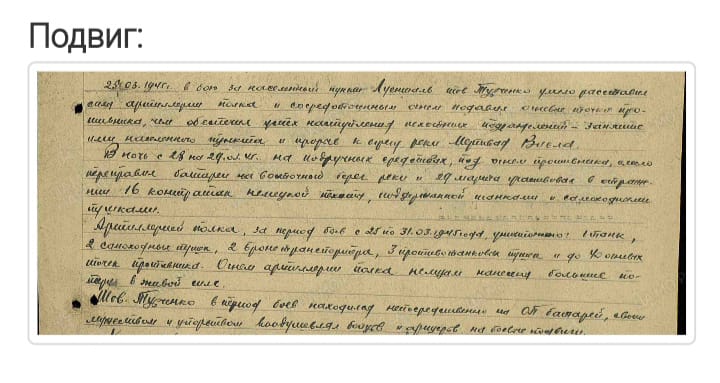 Подвиг:
25.03.1945г. в бою за населенный пункт тов Тудченко умело расставил
силы артиллерии полка и сосредоточенным огнем подавил огневые точки про-
тивника, чем обеспечил успех наступления пехотных подразделений – занятие
ими населенного пункта и прорыв к берегу реки Мертвая Висла.
В ночь с 28 на 29.03.45г. на подручных средствах, под огнем противника, смело
переправил батареи на восточный берег реки и 29 марта участвовал в отраже-
нии 16 контратак немецкой пехоты, поддержанной танками и самоходными
пушками.
Артиллерией полка, за период боев с 25 по 31.03.1945 года, уничтожено: 1 танк,
2 самоходных пушки, 2 бронетранспортера, 3 противотанковых пушки и до 40 огневых
точек противника. Огнем артиллерии полка немцам нанесены большие по-
тери в живой силе.
Тов. Тудченко в период боев находился непосредственно на ОП батарей, своим
мужеством и упорством воодушевлял бойцов и офицеров на боевые подвиги.